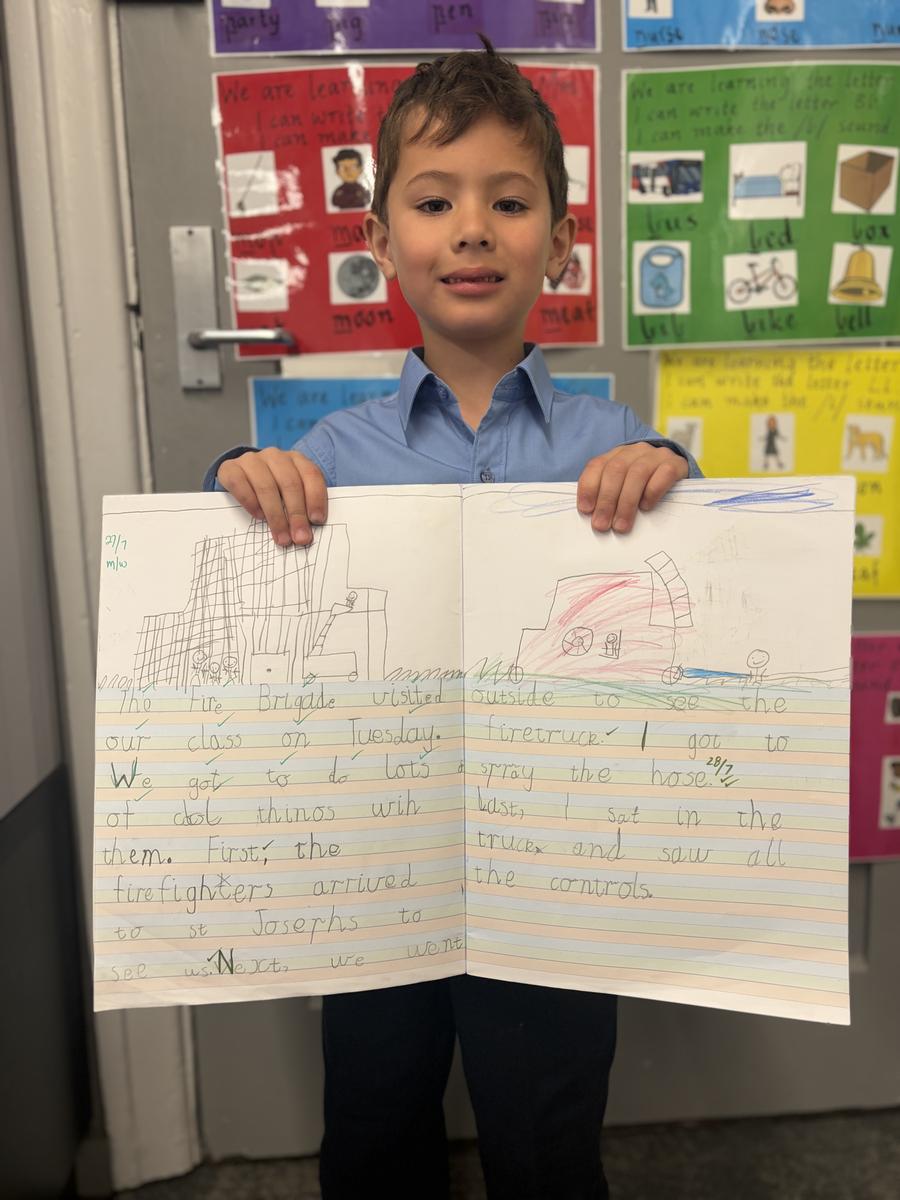 party pig pen pin
nurse nose
We are learning
I can write t
I can make
moon
meat
We are learning the letter
I can write the letter Bb
I can make the /b/ sound
bus bed box
bib bike bell
We are lear
I can
We are learning the letter
I can write the letter Ll
I can make the /l/ soun
27/7
m/w
The Fire Brigade visited
our class on Tuesday.
We got to do lots
of cool things wih
them. First, the
firefighters arrived
to st Josephs to
see us. Next, we went
outside to see the
firetruck. I got to
28/7
spray the hose.
Last, I sat in the
truck and saw all
the controls.